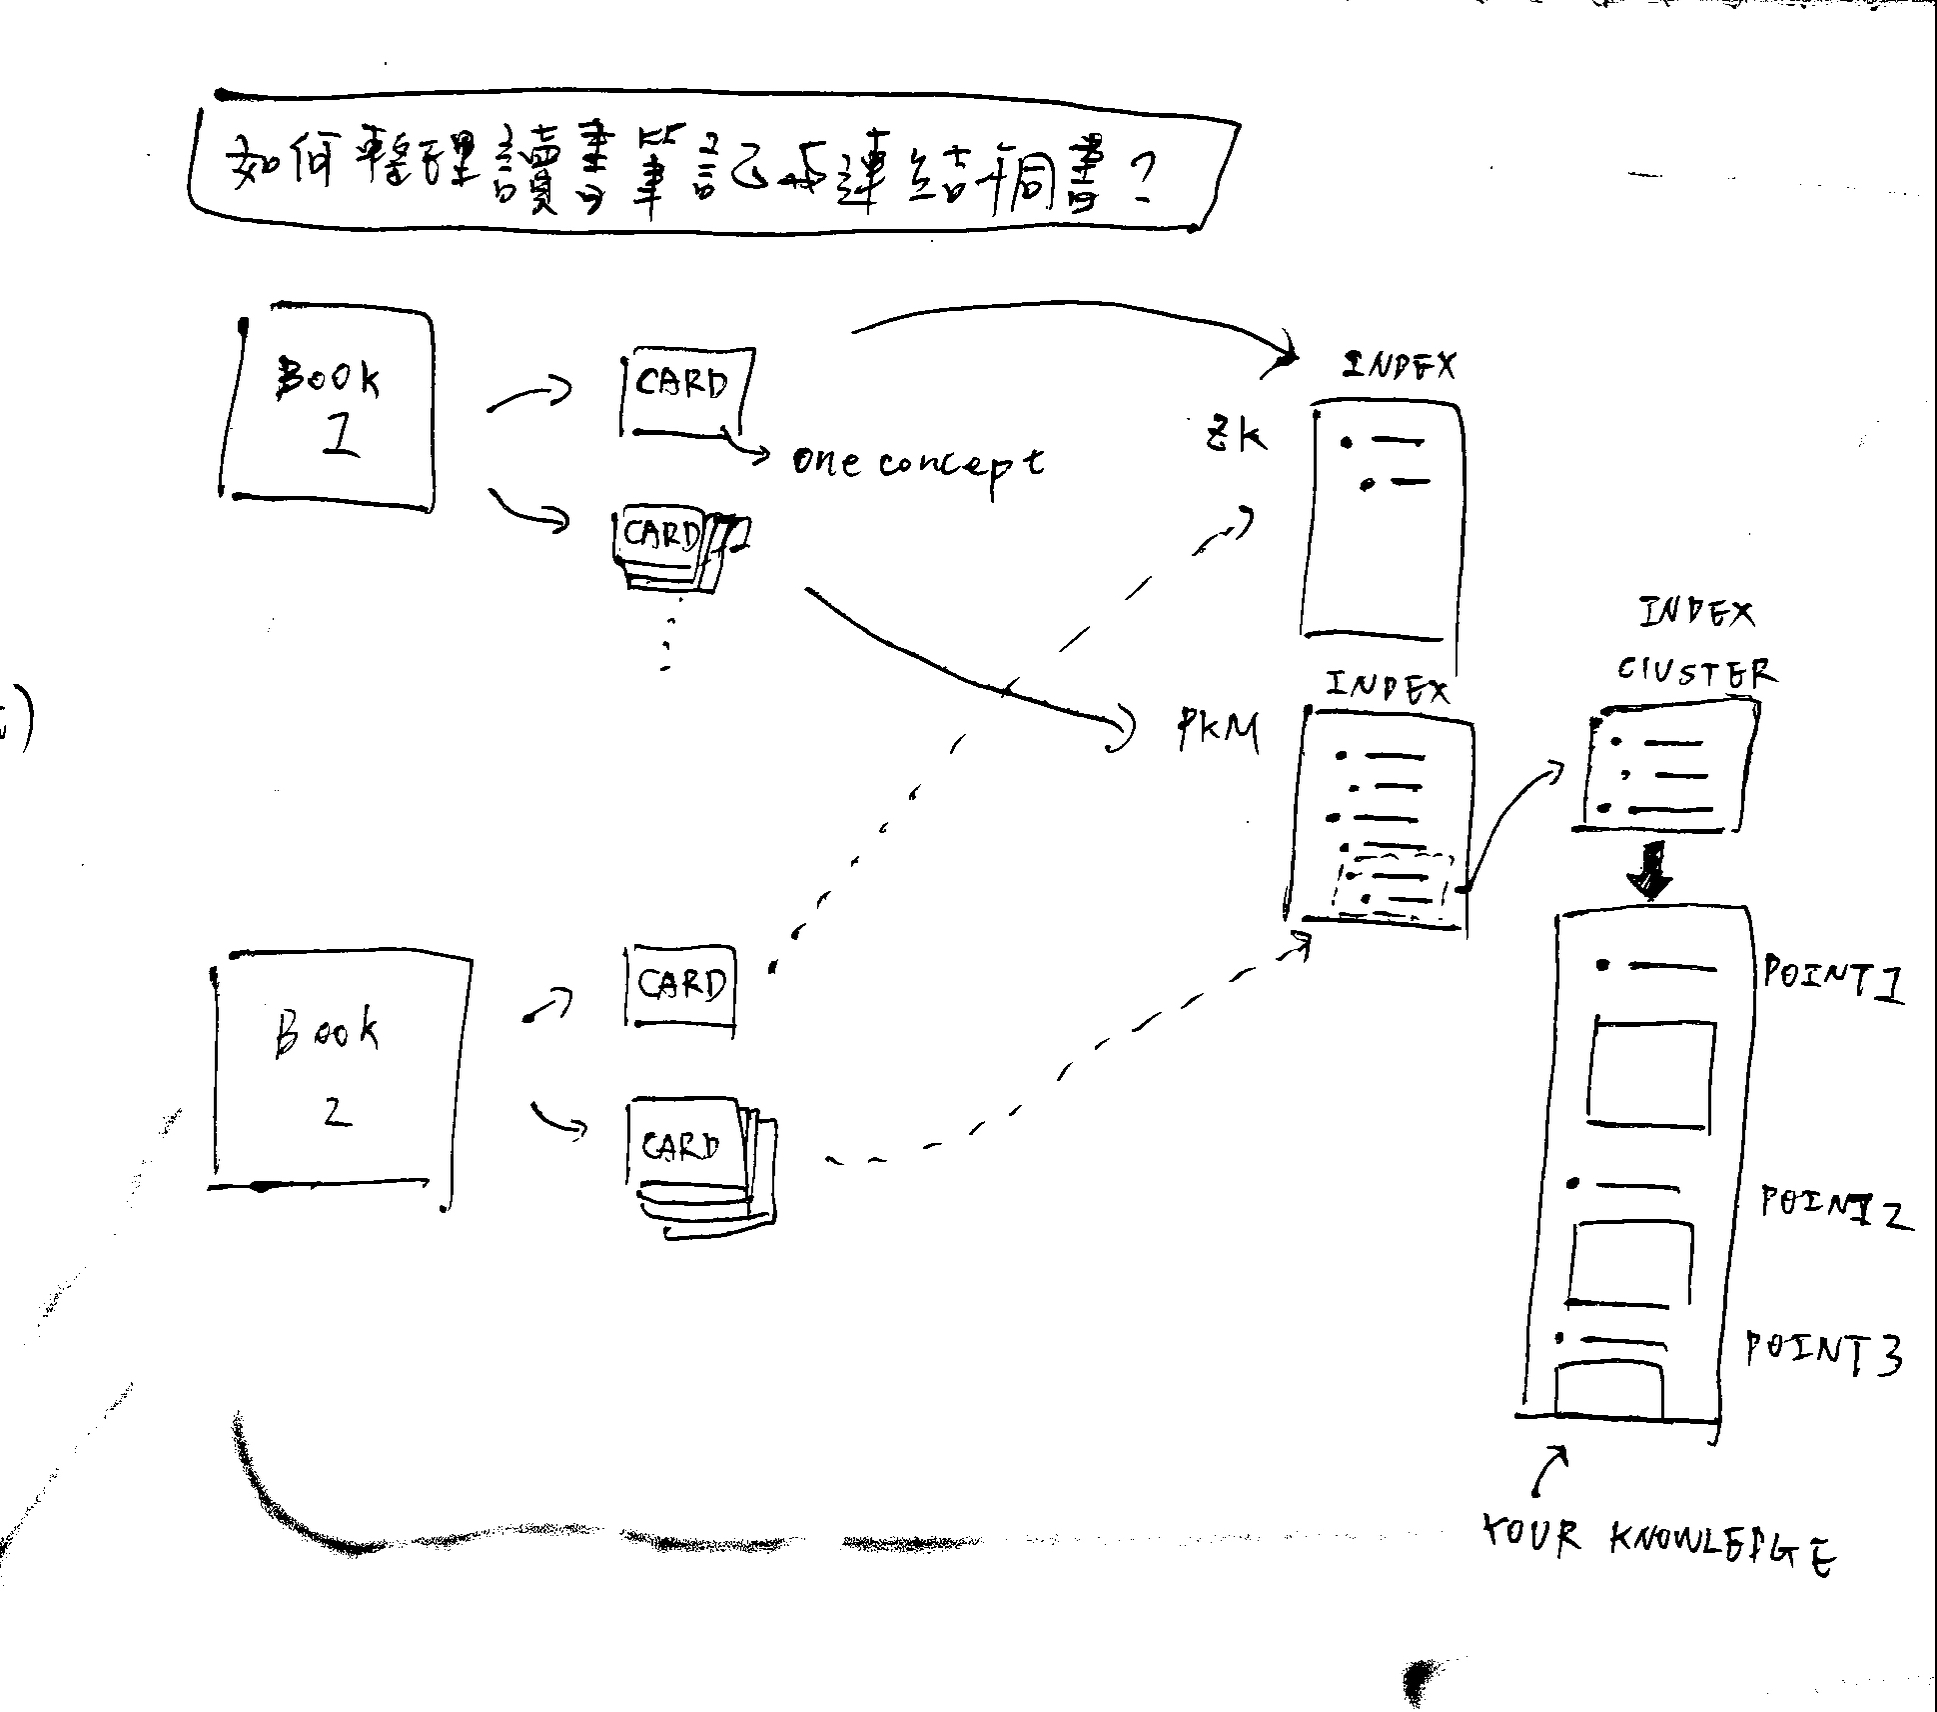 如何整理讀書筆記与連結不同書?
BOOK
1
CARD
one concept
CARD
ZK
INDEX
PKM
INDEX
INDEX
CLUSTER
BOOK
2
CARD
CARD
POINT1
POINT2
POINT3
YOUR KNOWLEDGE